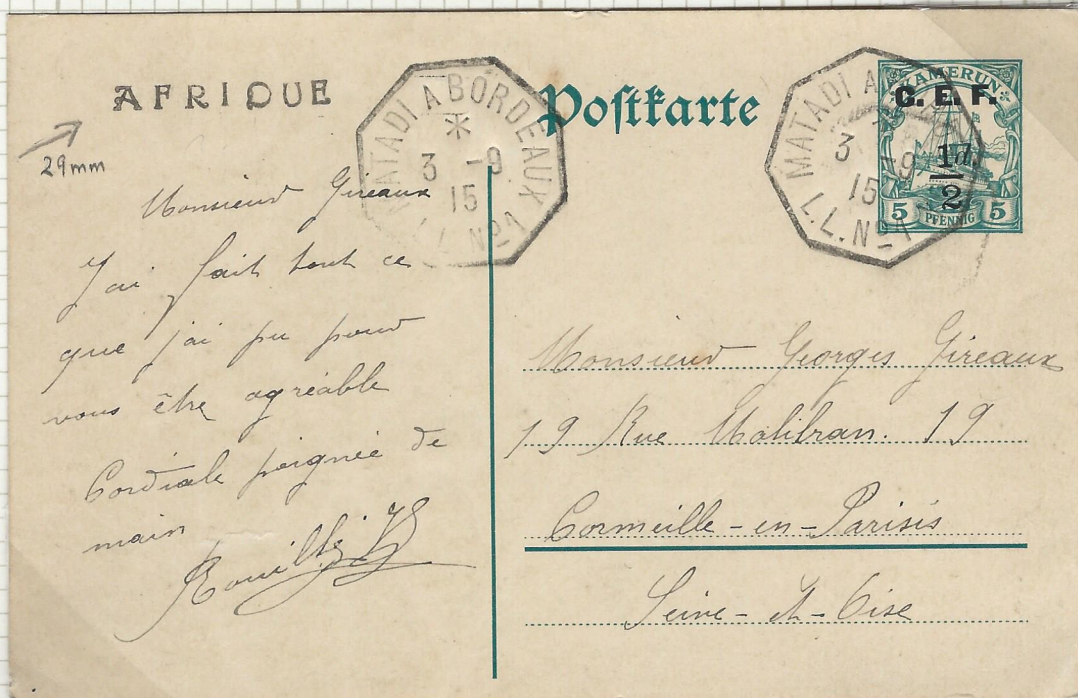 AFRIQUE
29mm
MATADI A BORDEAUX
3 -9
15
L.L. No 1
Postkarte
MATADI A
3 -9
15
L.L. No 1
KAMERUN
C. E. F.
1/2 d.
5 PFENNIG 5
Monsieur Gireaux
J'ai fait tout ce
que j'ai pu pour
vous être agréable
Cordiale poignée de
main
Monsieur Georges Gireaux
19 Rue Malibran. 19
Cormeille-en-Parisis
Seine-et-Oise